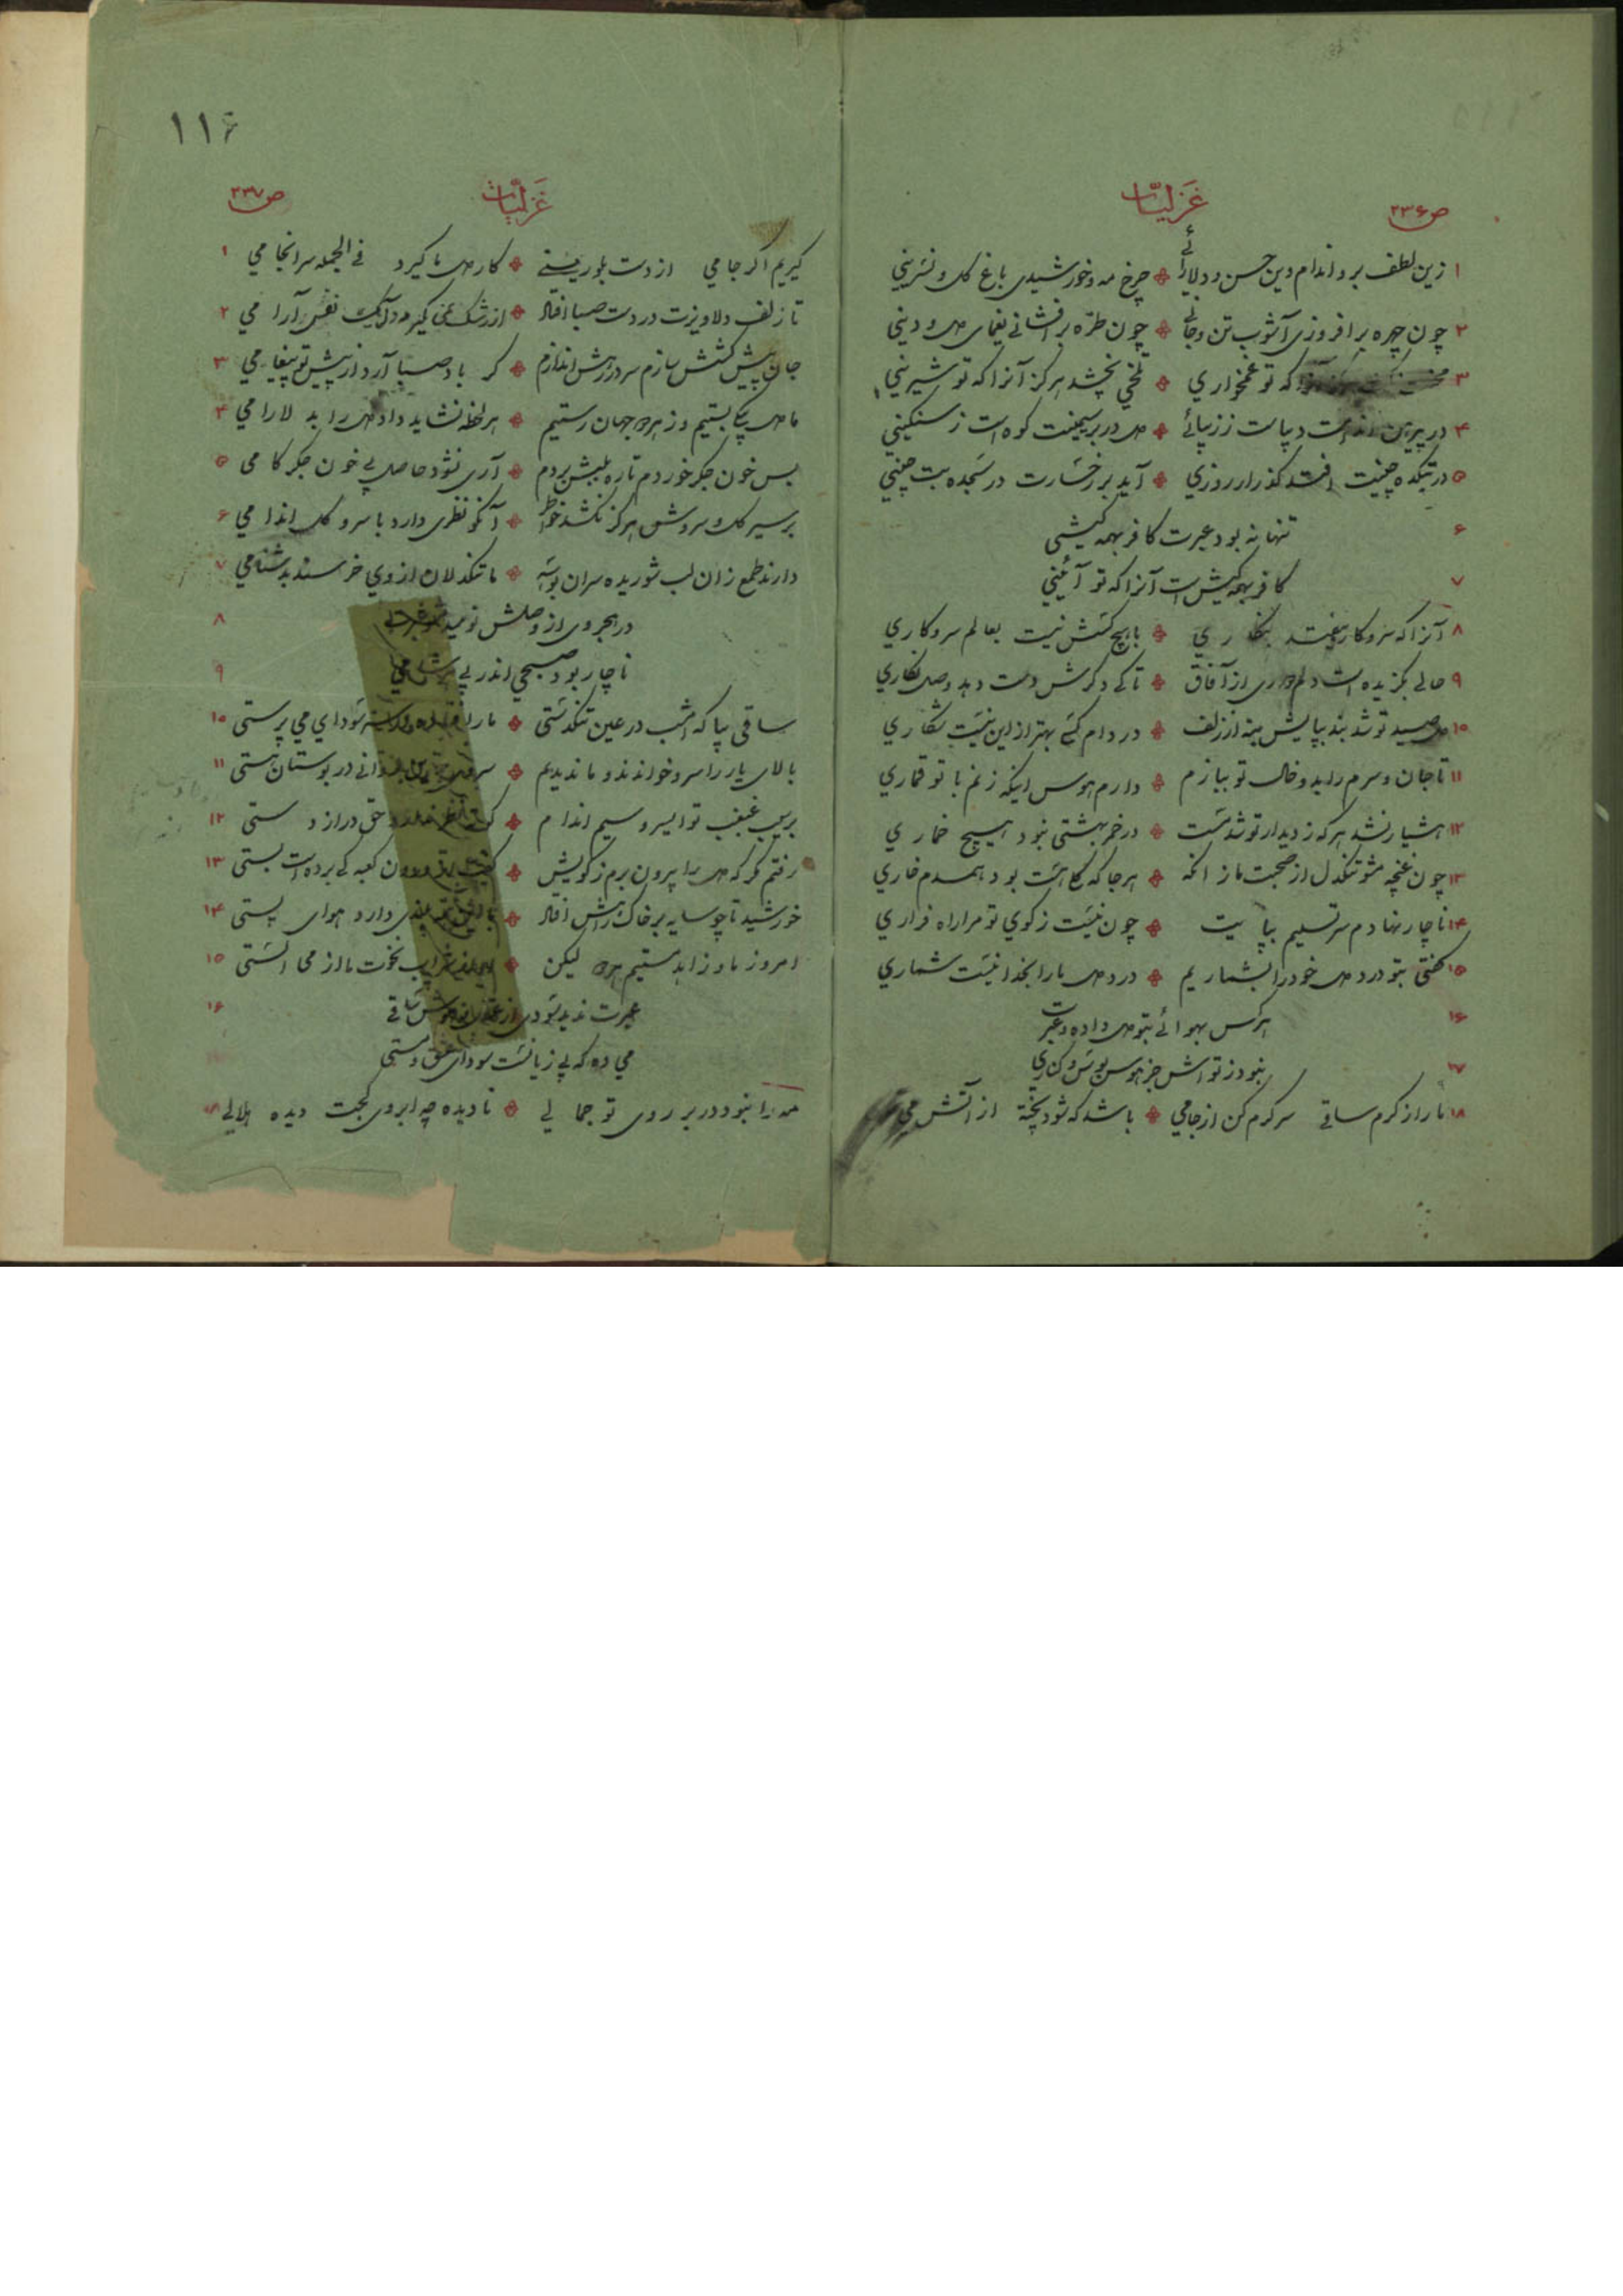 ص۲۳۶
غزلیات
۱ زین لطف برو اندام وین حسن و دلارائے ❖ چرخ مه و خورشیدی باغ گل و نسرینی
۲ چون چهره برافروزی آشوب تن و جانے ❖ چون طرّه برافشانے یغمای دل و دینی
۳ که تو غمخواری ❖ تلخی نچشد هرگز آنرا که تو شیرینی
۴ در پیرهن اندامت دیباست ززیبائے ❖ دل در بر سیمینت کوه است ز سنگینی
۵ در بتکده چینت افتد گذر ار روزی ❖ آید بر رخسارت در سجده بت چینی
۶ تنها نه بود عبرت کافر بهمه کیشی
۷ کافر بهمه کیش است آنرا که تو آئینی
۸ آنرا که سر و کار بیفتد بنگاری ❖ با هیچ کسش نیست بعالم سر و کاری
۹ حالی بگزیده است دلم یاری از آفاق ❖ تا کے دگرش دست دهد وصل نگاری
۱۰ دل صید تو شد بند بپایش بنه از زلف ❖ در دام کسے بهتر از این نیست شکاری
۱۱ تا جان و سرم را بدو خال تو ببازم ❖ دارم هوس اینکه زنم با تو قماری
۱۲ هشیار نشد هرکه ز دیدار تو شد مست ❖ در خمر بهشتی نبود هیچ خماری
۱۳ چون غنچه مشو تنگدل از صحبت ما زانکه ❖ هر جا که گلی هست بود همدم خاری
۱۴ ناچار نهادم سر تسلیم بپایت ❖ چون نیست ز کوی تو مرا راه فراری
۱۵ گفتی بتو درد دل خود را بشماریم ❖ درد دل ما را بخدا نیست شماری
۱۶ هرکس بهوائے بتو دل داده و عبرت
۱۷ نبود ز تواش جز هوس بوس و کناری
۱۸ ما را ز کرم ساقی سرگرم کن از جامی ❖ باشد که شود پخته از آتش می
۱۱۶
غزلیات
ص۲۳۷
گیریم اگر جامی از دست بلورینے ❖ کار دل ما گیرد فی الجمله سرانجامی ۱
تا زلف دلاویزت در دست صبا افتاد ❖ از رشک نمی گیرد دل یک نفس آرامی ۲
جان پیش کشش سازم سر در رهش اندازم ❖ گر باد صبا آرد از پیش تو پیغامی ۳
ما دل بیکی بستیم وز هر دو جهان رستیم ❖ هر لحظه نشاید داد دل را بدلارامی ۴
بس خون جگر خوردم تا ره بلبش بردم ❖ آری نشود حاصل بے خون جگر کامی ۵
بر سیر گل و سروش هرگز نکشد خاطر ❖ آنکو نظری دارد با سرو گل اندامی ۶
دارند طمع زان لب شوریده سران بوسه ❖ ما تنگدلان از وی خرسند بدشنامی ۷
در هجر وی از وصلش نومید مشو عبرت ۸
ناچار بود صبحی اندر پی هر شامی ۹
ساقی بیا که امشب در عین تنگدستی ❖ ما را سودای می پرستی ۱۰
بالای یار را سرو خوانند و ما ندیدیم ❖ سروی در بوستان هستی ۱۱
بر سیب غبغب تو ای سرو سیم اندام ❖ دراز دستی ۱۲
رفتم گر که دل را بیرون برم ز کویش ❖ کعبه کے برده است بستی ۱۳
خورشید تا چو سایه بر خاک رهش افتاد ❖ دارد هوای پستی ۱۴
امروز ما و زاهد مستیم هر دو لیکن ❖ نخوت ما از می الستی ۱۵
عبرت ندید سودی از عقل و هوش ساقی ۱۶
می ده که بی زیانست سودای عشق و مستی
مه را نبود در بر روی تو جمالی ❖ نادیده چه ابروی کجت دیده هلالی